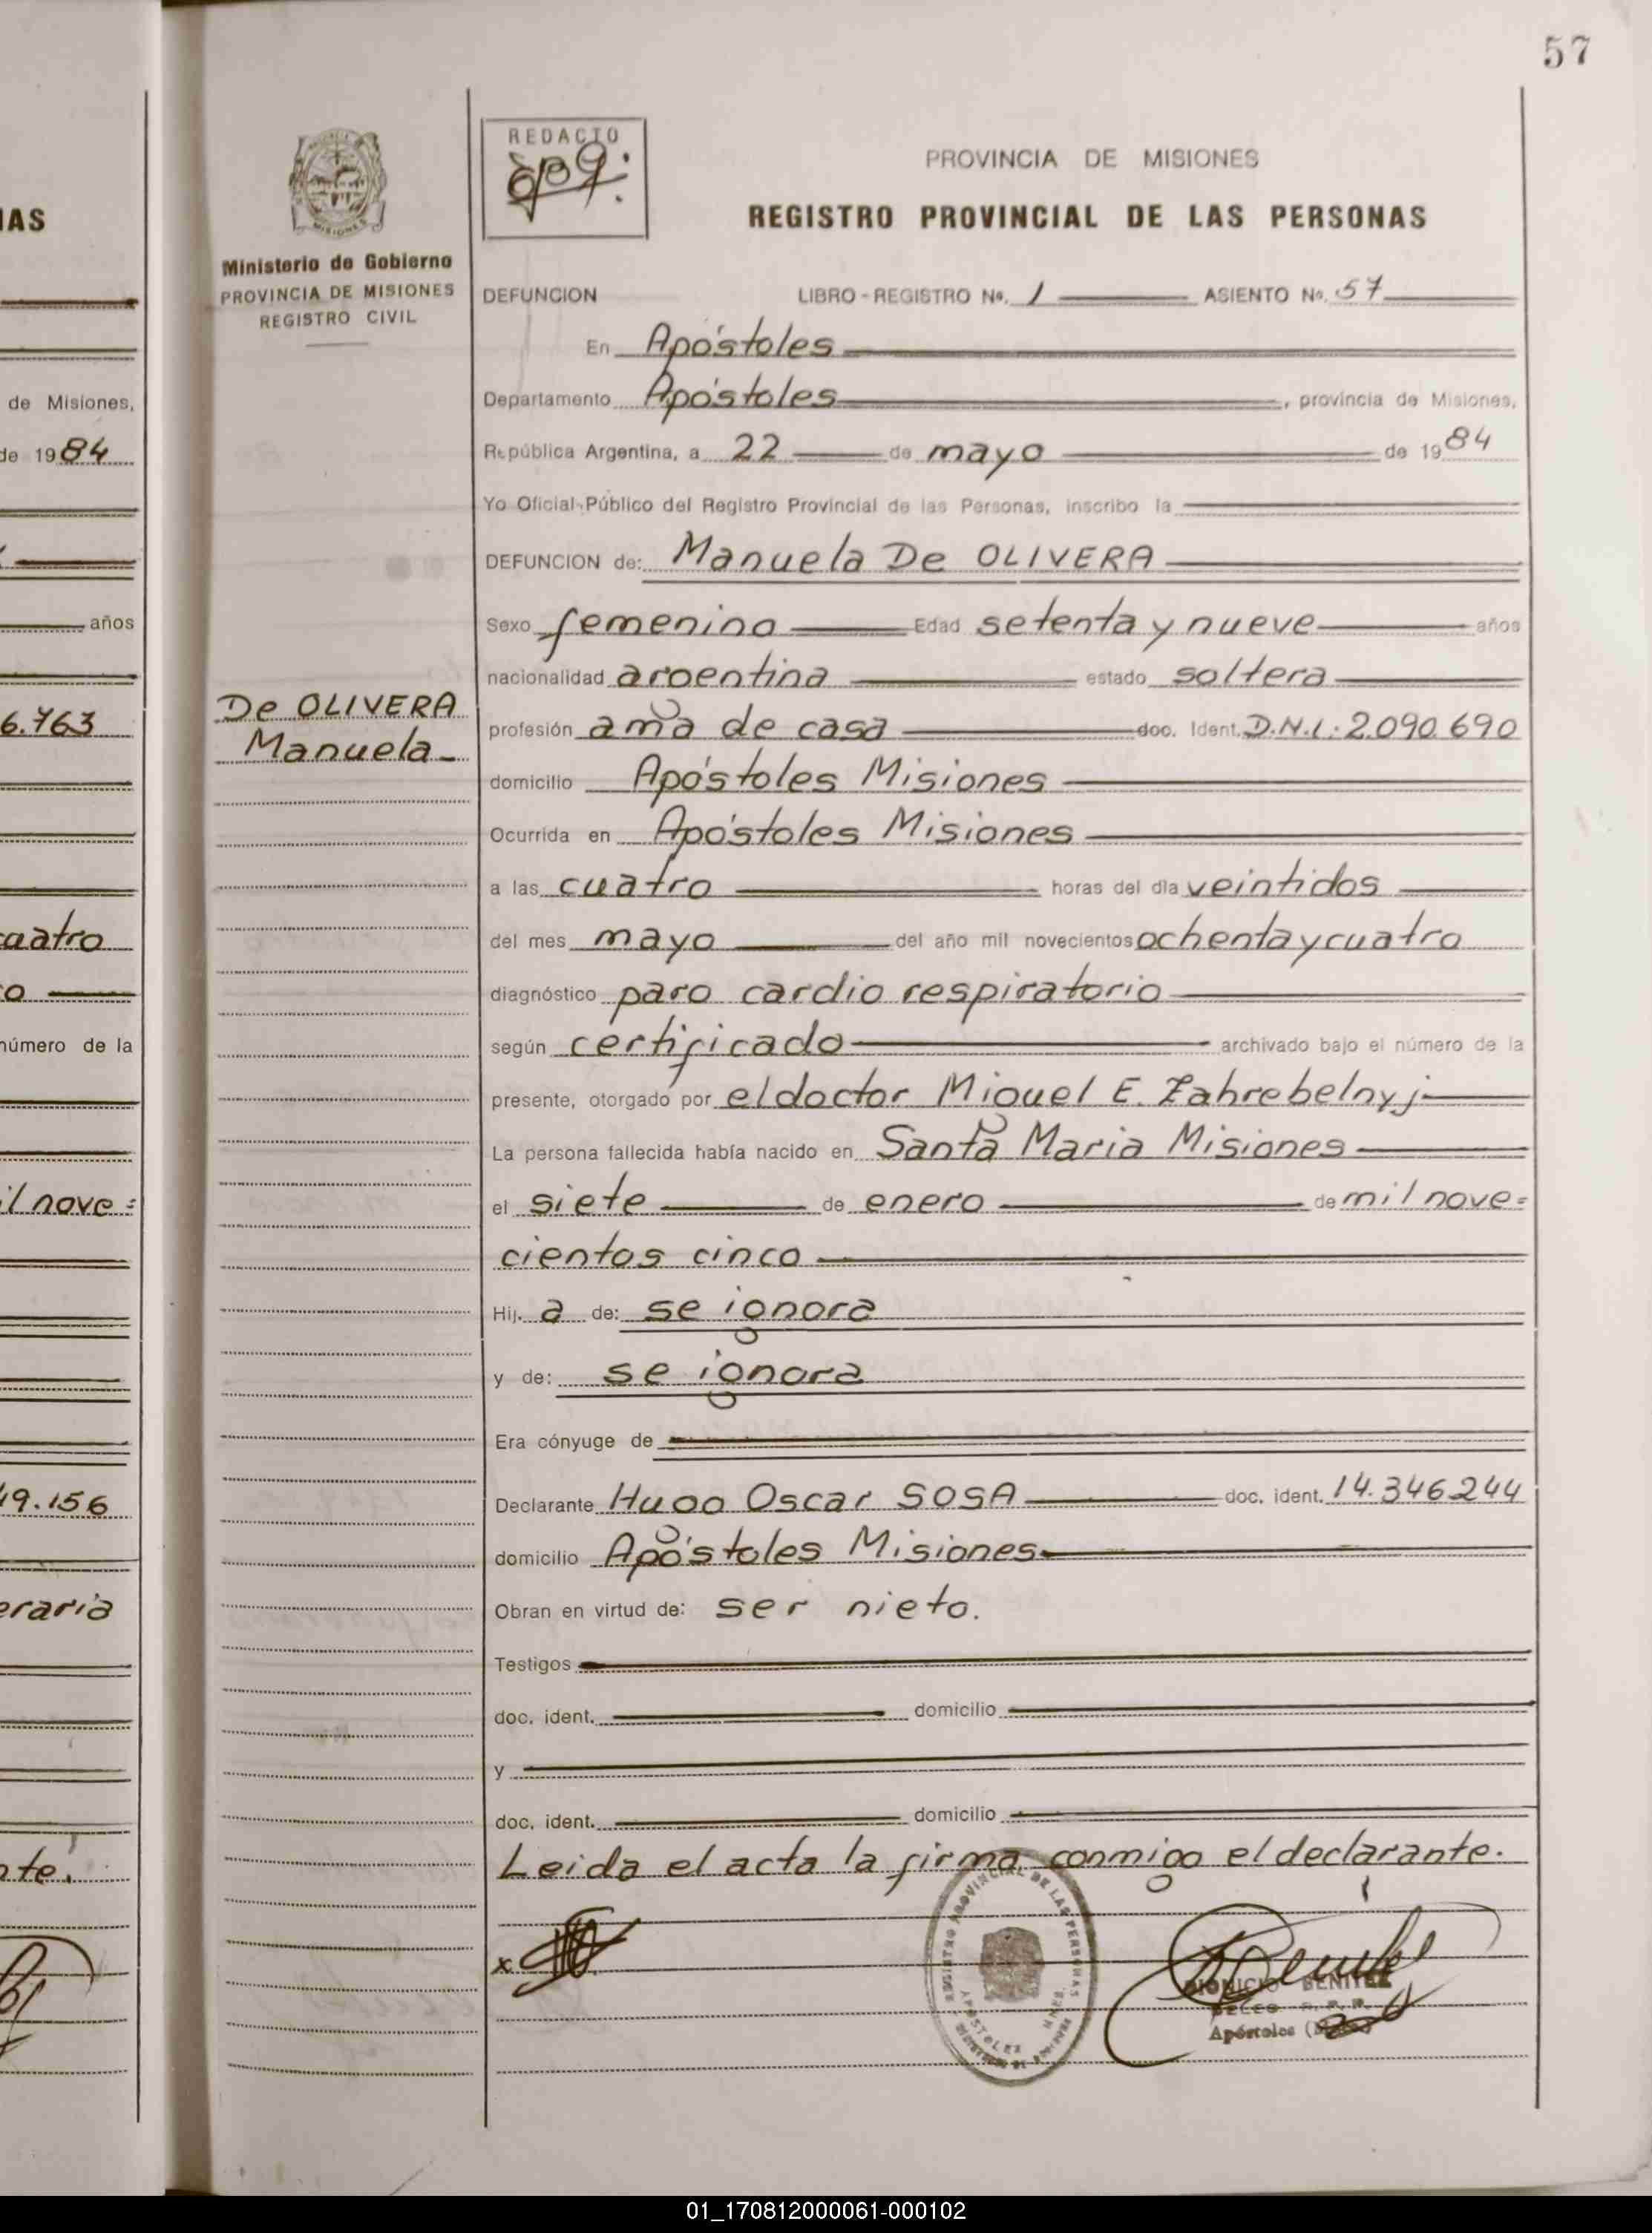 57
IAS
de Misiones,
de 1984
años
6.763
cuatro
o
número de la
il nove=
49.156
eraria
nte.
MISIONES
Ministerio de Gobierno
PROVINCIA DE MISIONES
REGISTRO CIVIL
De OLIVERA
Manuela
REDACTO
PROVINCIA DE MISIONES
REGISTRO PROVINCIAL DE LAS PERSONAS
DEFUNCION LIBRO-REGISTRO Nº. 1 ASIENTO Nº. 57
En Apóstoles
Departamento Apóstoles, provincia de Misiones,
República Argentina, a 22 de mayo de 1984
Yo Oficial Público del Registro Provincial de las Personas, inscribo la
DEFUNCION de: Manuela De OLIVERA
Sexo femenino Edad setenta y nueve años
nacionalidad argentina estado soltera
profesión ama de casa doc. Ident. D.N.I.: 2.090.690
domicilio Apóstoles Misiones
Ocurrida en Apóstoles Misiones
a las cuatro horas del día veintidos
del mes mayo del año mil novecientos ochenta y cuatro
diagnóstico paro cardio respiratorio
según certificado archivado bajo el número de la
presente, otorgado por el doctor Miguel E. Zahrebelnyj
La persona fallecida había nacido en Santa Maria Misiones
el siete de enero de mil nove=
cientos cinco
Hij. a de: se ignora
y de: se ignora
Era cónyuge de
Declarante Hugo Oscar SOSA doc. ident. 14.346.244
domicilio Apóstoles Misiones
Obran en virtud de: ser nieto.
Testigos
doc. ident. domicilio
y
doc. ident. domicilio
Leida el acta la firma conmigo el declarante.
x
REGISTRO PROVINCIAL DE LAS PERSONAS
APOSTOLES
DIONICIO BENITEZ
Apóstoles
01_170812000061-000102